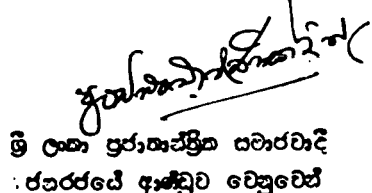 ශ්‍රී ලංකා ප්‍රජාතාන්ත්‍රික සමාජවාදී
ජනරජයේ ආණ්ඩුව වෙනුවෙන්